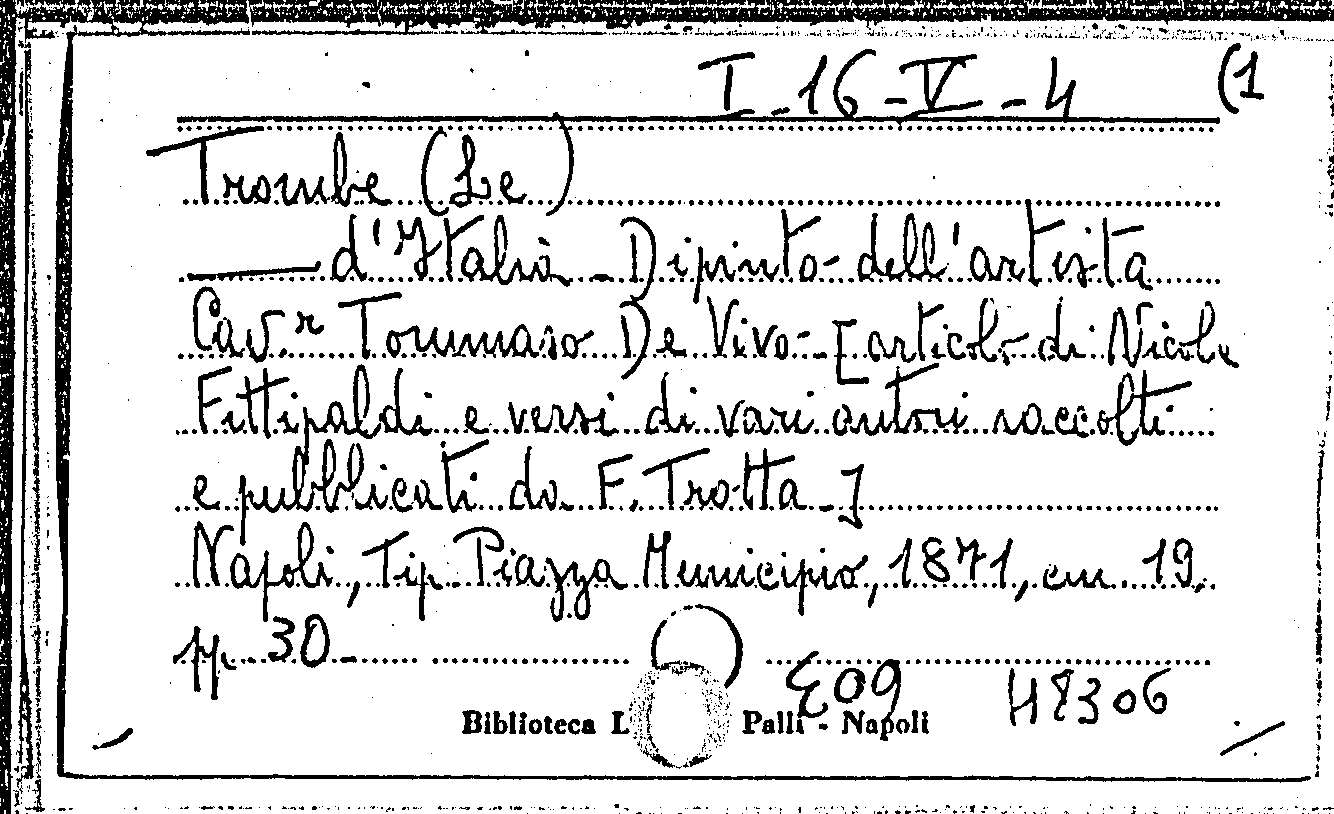 I-16-V-4 (1
Trombe (Le)
—— d'Italia - Dipinto dell'artista
Cav.r Tommaso De Vivo - [articolo di Nicola
Fittipaldi e versi di vari autori raccolti
e pubblicati da F. Trotta -]
Napoli, Tip. Piazza Municipio, 1871, cm. 19,
pp. 30 -
E09 48306
Biblioteca L Palli - Napoli